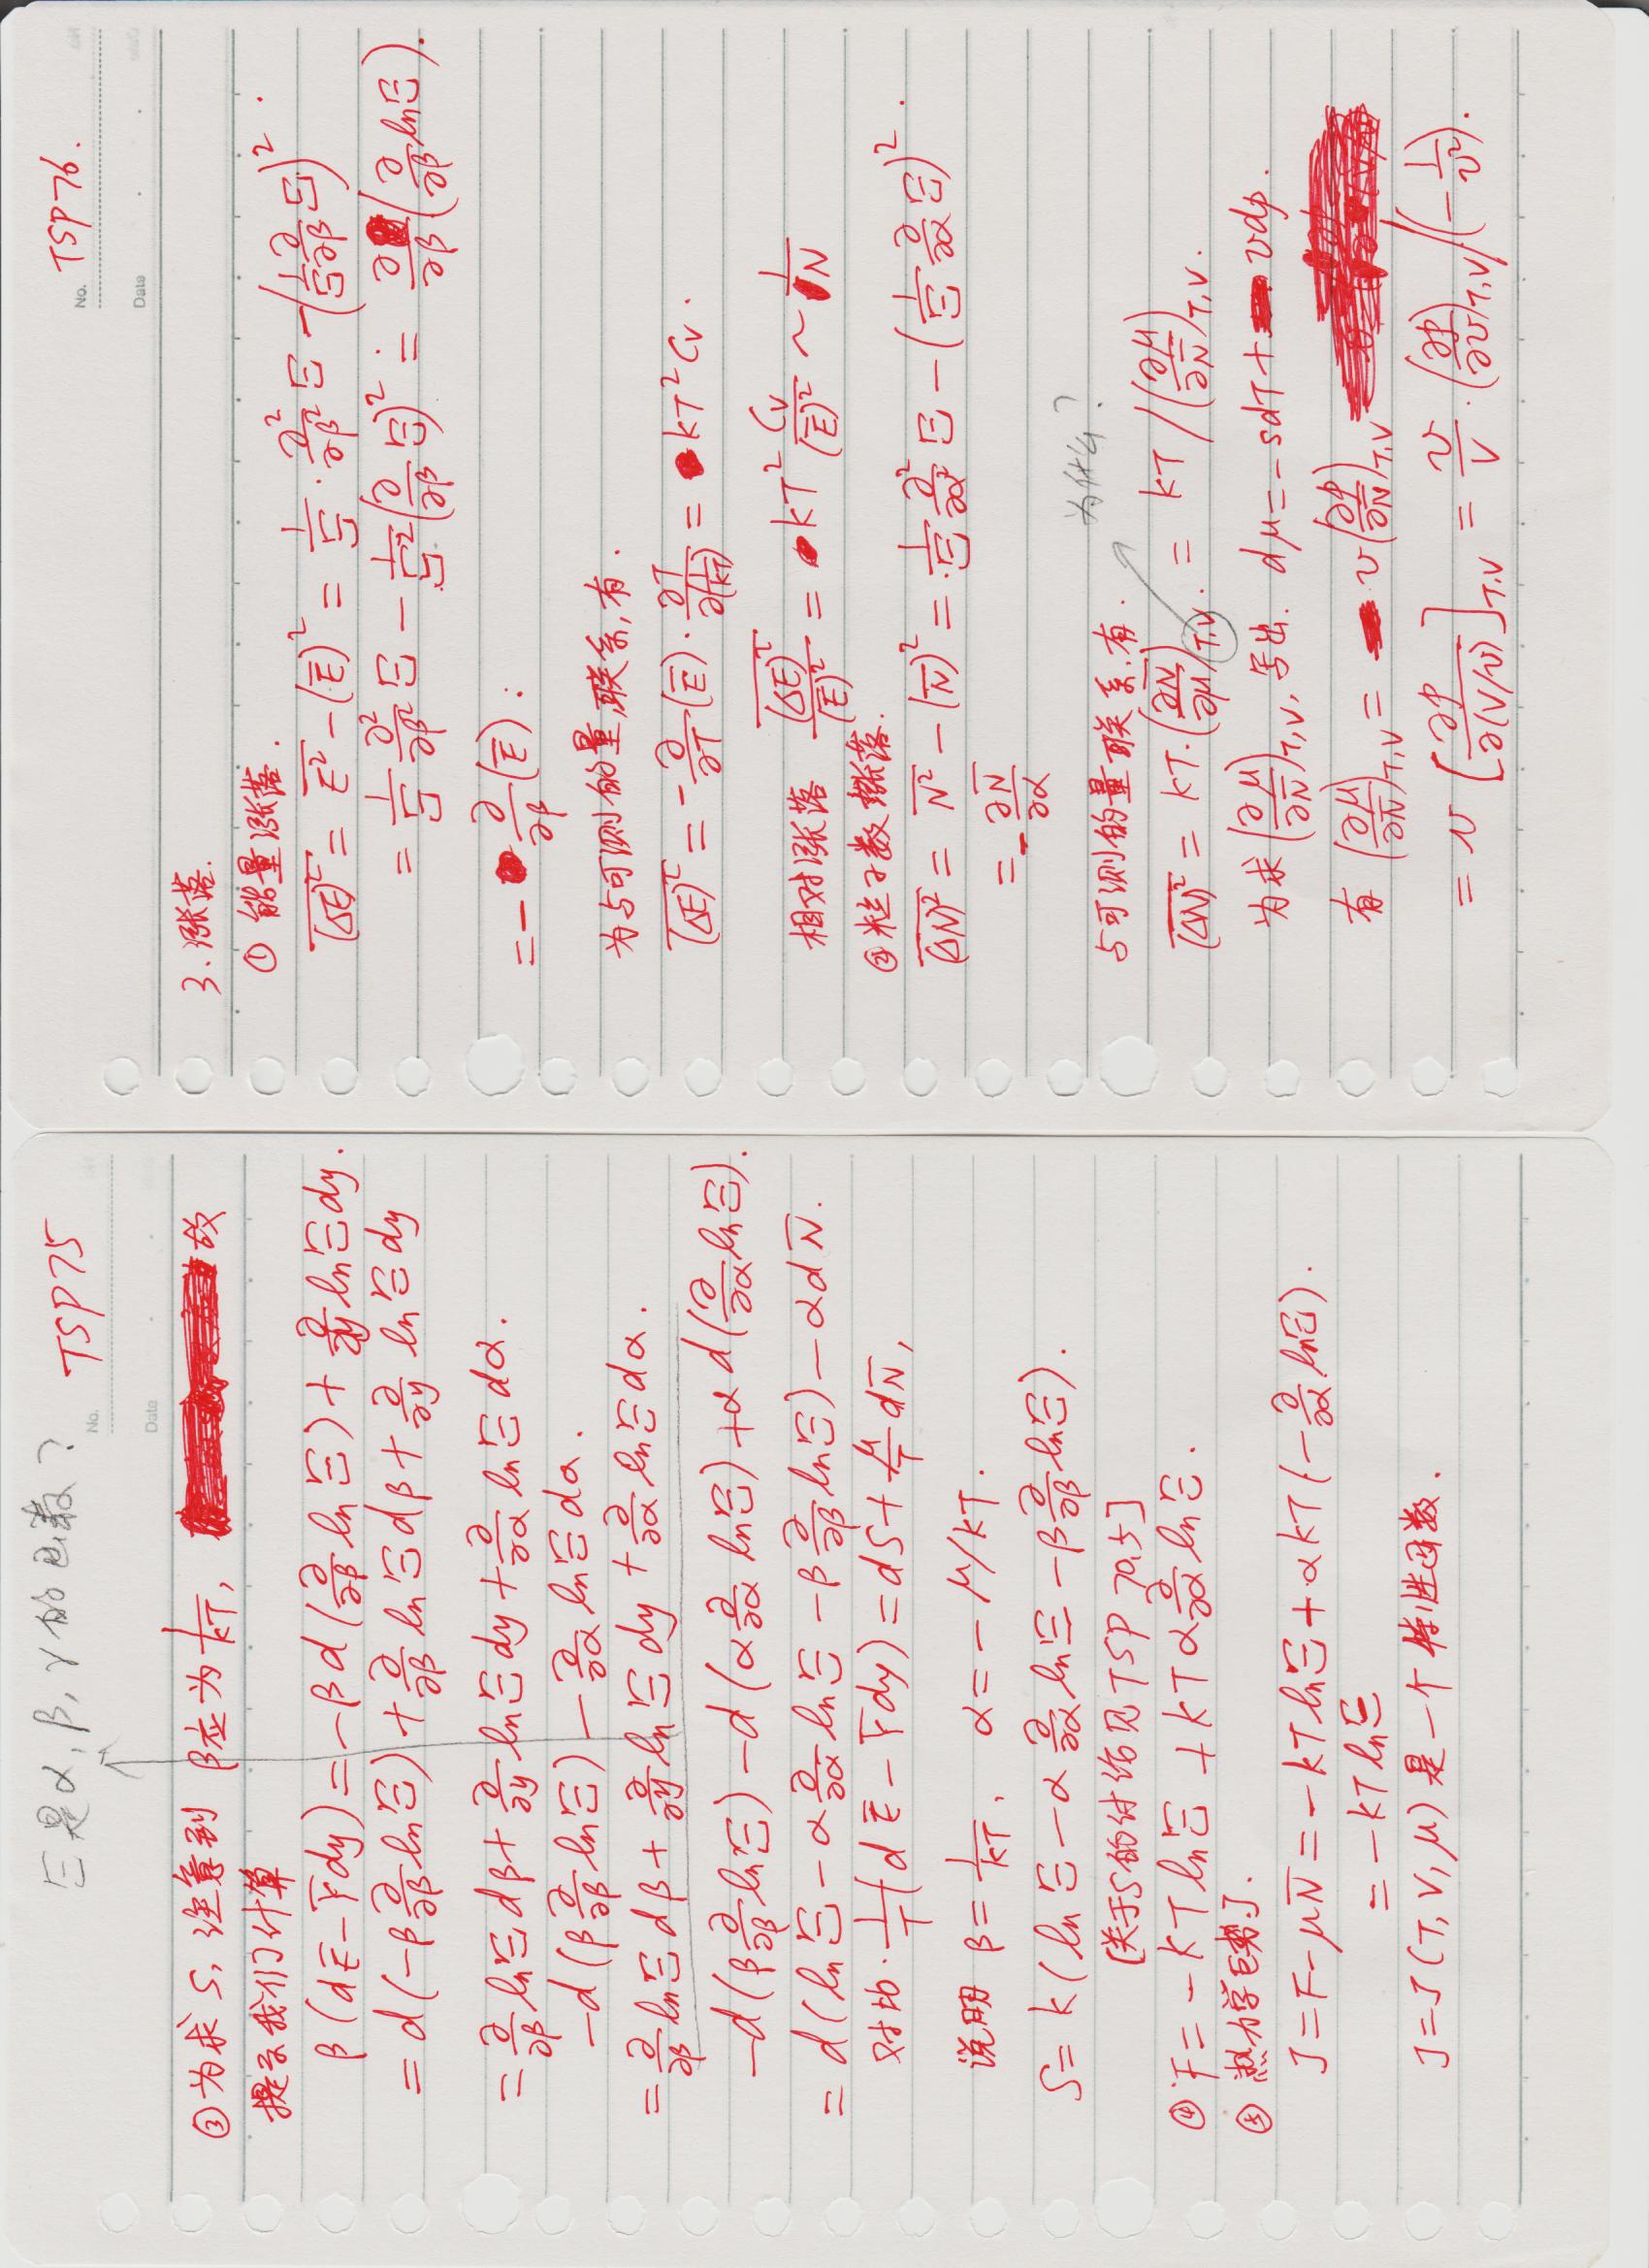 Ξ是α,β,γ的函数?
TSP75
No.
Date
③为求S,注意到 β应为1/kT, 故
提示我们计算
β(dE̅-F̅dy)=-βd(∂/∂β lnΞ)+∂/∂y lnΞdy.
=d(-β∂/∂β lnΞ)+∂/∂β lnΞdβ+∂/∂y lnΞdy
=∂/∂β lnΞdβ+∂/∂y lnΞdy+∂/∂α lnΞdα.
-d(β∂/∂β lnΞ)-∂/∂α lnΞdα.
=∂/∂β lnΞdβ+∂/∂y lnΞdy+∂/∂α lnΞdα.
-d(β∂/∂β lnΞ)-d(α∂/∂α lnΞ)+αd(∂/∂α lnΞ).
=d(lnΞ-α∂/∂α lnΞ-β∂/∂β lnΞ)-αdN̅.
对比·1/T(dE̅-F̅dy)=dS+μ/T dN̅,
说明 β=1/kT, α=-μ/kT.
S=k(lnΞ-α∂/∂α lnΞ-β∂/∂β lnΞ).
[关于S的讨论见TSP70.5]
④F=-kTlnΞ+kTα∂/∂α lnΞ.
⑤热力学巨势J.
J=F-μN̅=-kTlnΞ+αkT(-∂/∂α lnΞ).
=-kTlnΞ
J=J(T,V,μ)是一个特性函数.
No. TSP76.
Date
3.涨落.
①能量涨落.
\overline{(ΔE)²}=\overline{E²}-(E̅)²=1/Ξ·∂²/∂β² Ξ-(1/Ξ ∂/∂β Ξ)².
=1/Ξ ∂²/∂β² Ξ-1/Ξ²(∂/∂β Ξ)²=∂/∂β(∂/∂β lnΞ).
=-∂/∂β(E̅):
为与可测的量联系,有.
\overline{(ΔE)²}=-∂/∂T(E̅)·∂T/∂(1/kT)=kT²Cv.
相对涨落 \overline{(ΔE)²}/(E̅)²=kT² Cv/(E̅)²~1/N
②粒子数涨落.
\overline{(ΔN)²}=\overline{N²}-(N̅)²=1/Ξ ∂²/∂α² Ξ-(1/Ξ ∂/∂α Ξ)².
=-∂N̅/∂α
为什么?
与可测的量联系,有.
\overline{(ΔN)²}=kT·(∂N̅/∂μ)T,V.=kT/(∂μ/∂N̅)T,V.
为求(∂μ/∂N̅)T,V,写出.dμ=-sdT+vdp.
有(∂μ/∂N̅)T,V=v(∂p/∂N̅)T,V
=v[∂p/∂(V/v)]T,V=v/V·(∂p/∂v)T,V/(-1/v²).